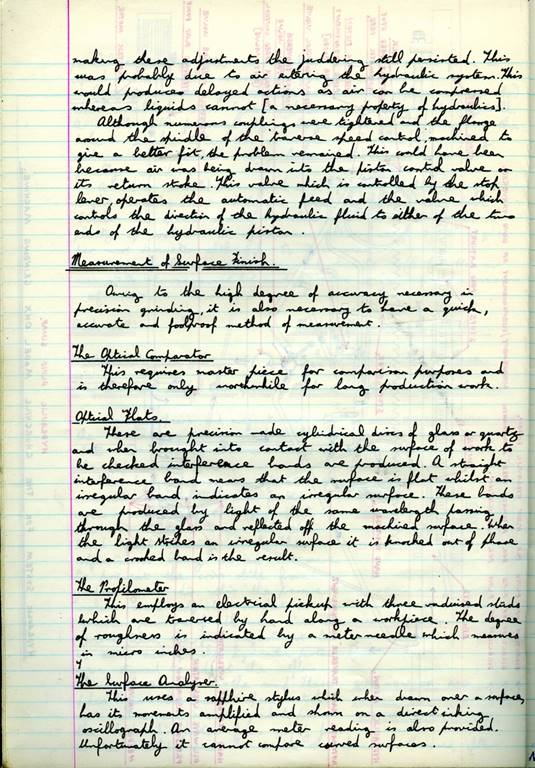 making these adjustments the juddering still persisted. This
was probably due to air entering the hydraulic system. This
would produces delayed actions as air can be compressed
whereas liquids cannot [a necessary property of hydraulics].
Although numerous couplings were tightened and the flange
around the spindle of the traverse speed control, machined to
give a better fit, the problem remained. This could have been
because air was being drawn into the piston control valve on
its return stroke. This valve which is controlled by the stop
lever, operates the automatic feed and the valve which
controls the direction of the hydraulic fluid to either of the two
ends of the hydraulic piston.
Measurement of Surface Finish.
Owing to the high degree of accuracy necessary in
precision grinding, it is also necessary to have a quick,
accurate and foolproof method of measurement.
The Optical Comparator
This requires master piece for comparison purposes and
is therefore only worthwhile for long production work.
Optical Flats.
These are precision made cylindrical discs of glass or quartz
and when brought into contact with the surface of work to
be checked interference bands are produced. A straight
interference band means that the surface is flat whilst an
irregular band indicates an irregular surface. These bands
are produced by light of the same wavelength passing
through the glass and reflected off the machined surface. When
the light strikes an irregular surface it is knocked out of phase
and a crooked band is the result.
The Profilometer
This employs an electrical pickup with three radiused studs
which are traversed by hand along a workpiece. The degree
of roughness is indicated by a meter needle which measures
in micro inches.
The Surface Analyser.
This uses a sapphire stylus which when drawn over a surface,
has its movements amplified and shown on a direct inking
oscillograph. An average meter reading is also provided.
Unfortunately it cannot compare curved surfaces.